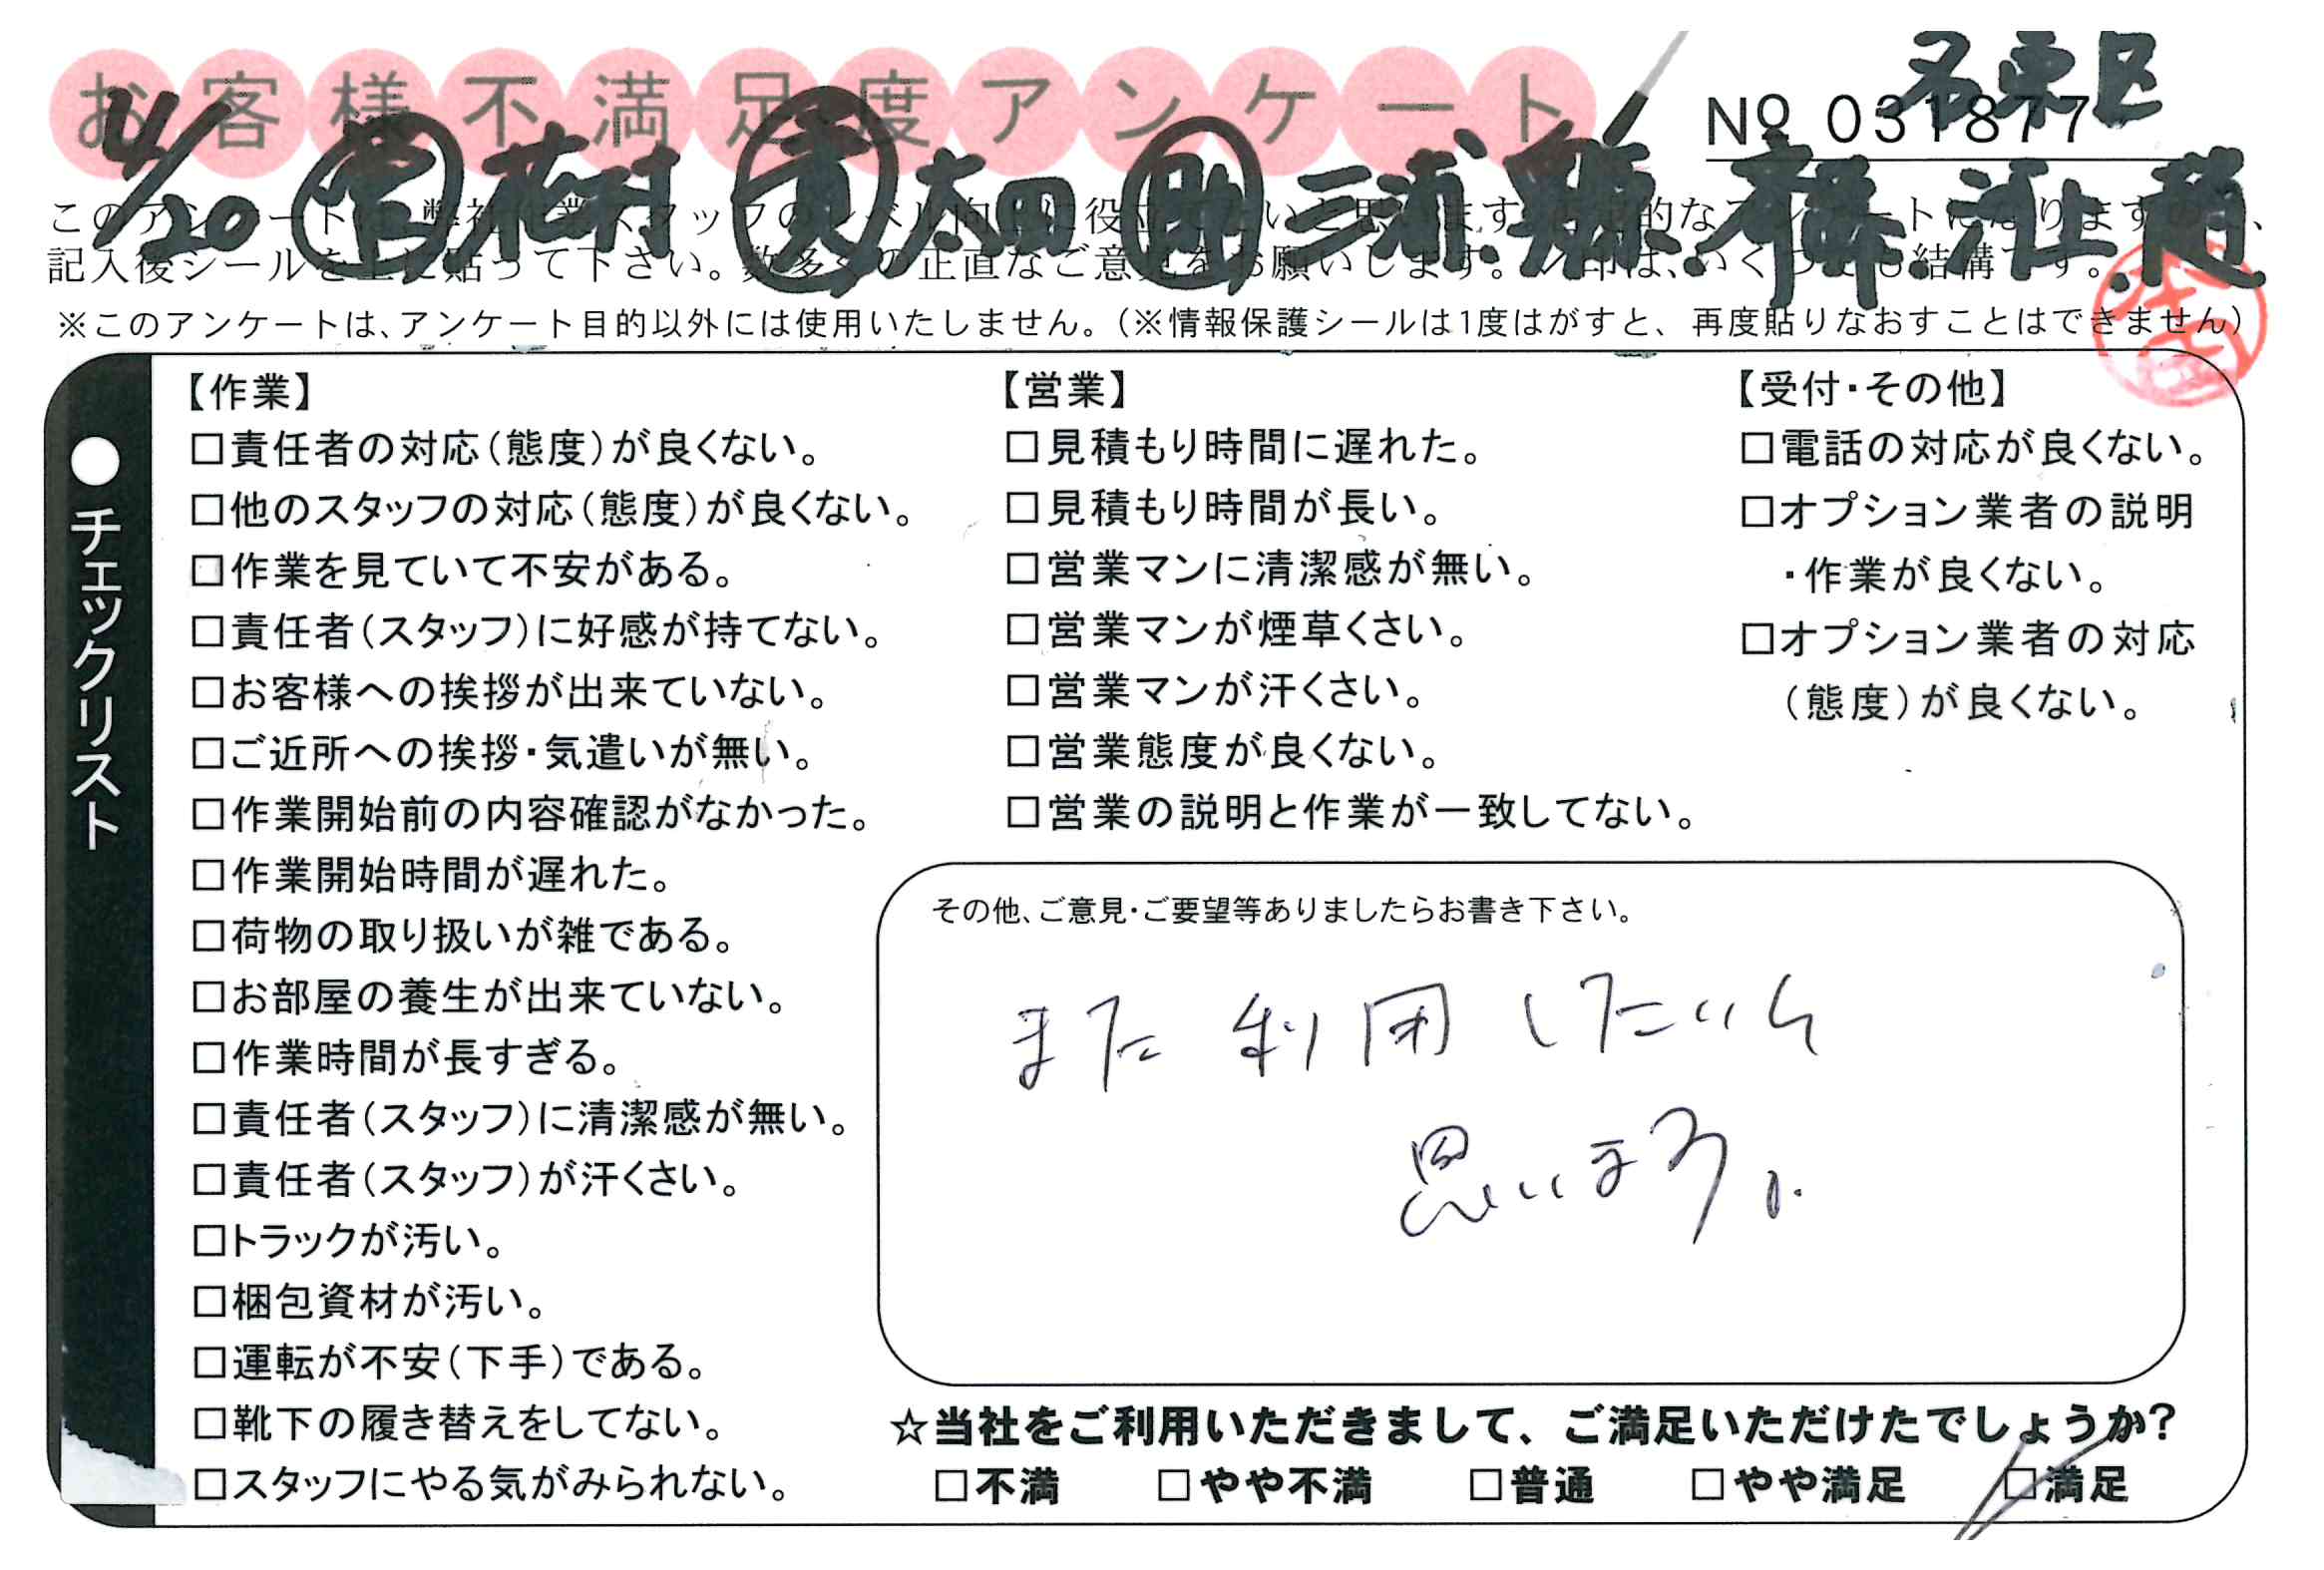 お客様不満足度アンケート
名東区
NO 031877
4/20 営 花村 責 太田 助 三浦
このアンケートは、弊社作業スタッフのレベル向上に役立てたいと思います。
記入後シールを上に貼って下さい。数多くの正直なご意見をお願いします。レ印は、いくつでも結構です。
※このアンケートは、アンケート目的以外には使用いたしません。(※情報保護シールは1度はがすと、再度貼りなおすことはできません)
●チェックリスト
【作業】
□責任者の対応(態度)が良くない。
□他のスタッフの対応(態度)が良くない。
□作業を見ていて不安がある。
□責任者(スタッフ)に好感が持てない。
□お客様への挨拶が出来ていない。
□ご近所への挨拶・気遣いが無い。
□作業開始前の内容確認がなかった。
□作業開始時間が遅れた。
□荷物の取り扱いが雑である。
□お部屋の養生が出来ていない。
□作業時間が長すぎる。
□責任者(スタッフ)に清潔感が無い。
□責任者(スタッフ)が汗くさい。
□トラックが汚い。
□梱包資材が汚い。
□運転が不安(下手)である。
□靴下の履き替えをしてない。
□スタッフにやる気がみられない。
【営業】
□見積もり時間に遅れた。
□見積もり時間が長い。
□営業マンに清潔感が無い。
□営業マンが煙草くさい。
□営業マンが汗くさい。
□営業態度が良くない。
□営業の説明と作業が一致してない。
【受付・その他】
□電話の対応が良くない。
□オプション業者の説明
・作業が良くない。
□オプション業者の対応
(態度)が良くない。
その他、ご意見・ご要望等ありましたらお書き下さい。
また利用したいと
思います。
☆当社をご利用いただきまして、ご満足いただけたでしょうか?
□不満 □やや不満 □普通 □やや満足 □満足